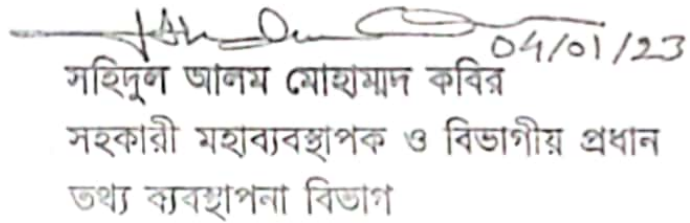 04/01/23
সহিদুল আলম মোহাম্মদ কবির
সহকারী মহাব্যবস্থাপক ও বিভাগীয় প্রধান
তথ্য ব্যবস্থাপনা বিভাগ